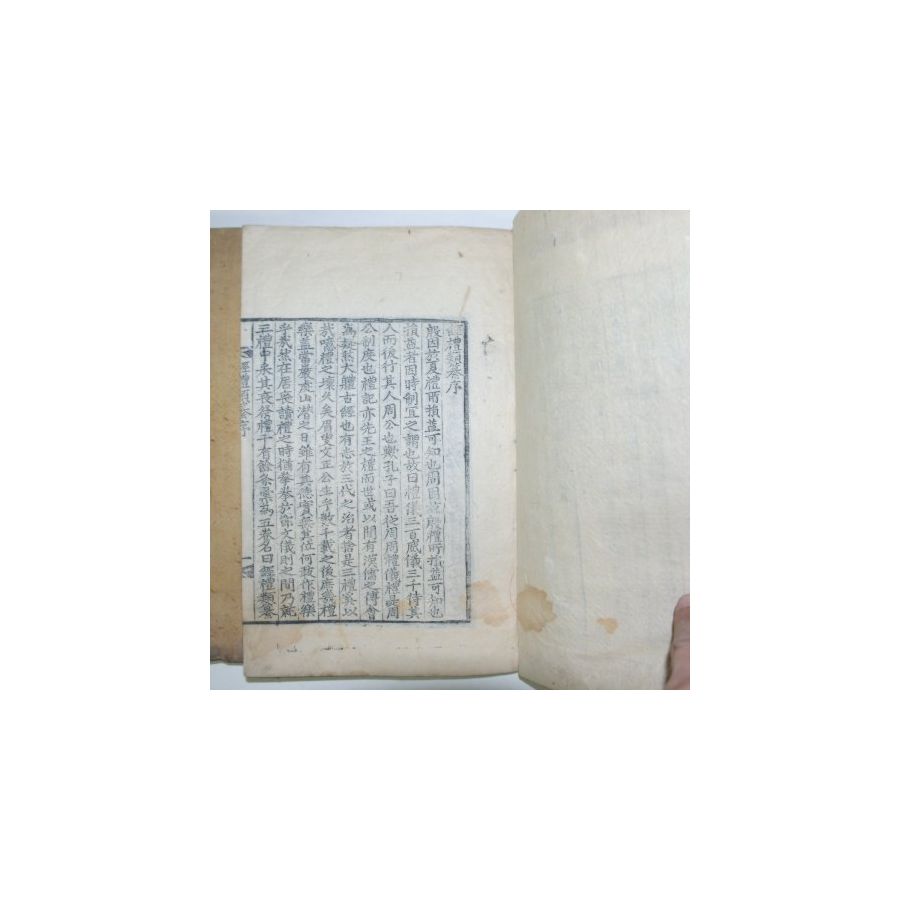 經禮類纂序
殷因於夏禮所損益可知也周因於殷禮所損益可知也
損益者因時制宜之謂也故曰禮儀三百威儀三千待其
人而後行其人周公也歟孔子曰吾從周周禮儀禮是周
公制度也禮記亦先王之禮而世或以間有漢儒之傅會
為疑然大體古經也有志於三代之治者捨是三禮奚以
哉噫禮之壞久矣眉叟文正公生乎數千載之後庶幾禮
樂盖當嚴處山潜之日雖有其德實無其位何敢作禮樂
乎哉然在居喪讀禮之時猶拳拳於節文儀則之間乃就
三禮中采其喪祭禮千有餘条彙為五卷名曰經禮類纂
經禮類纂序
一